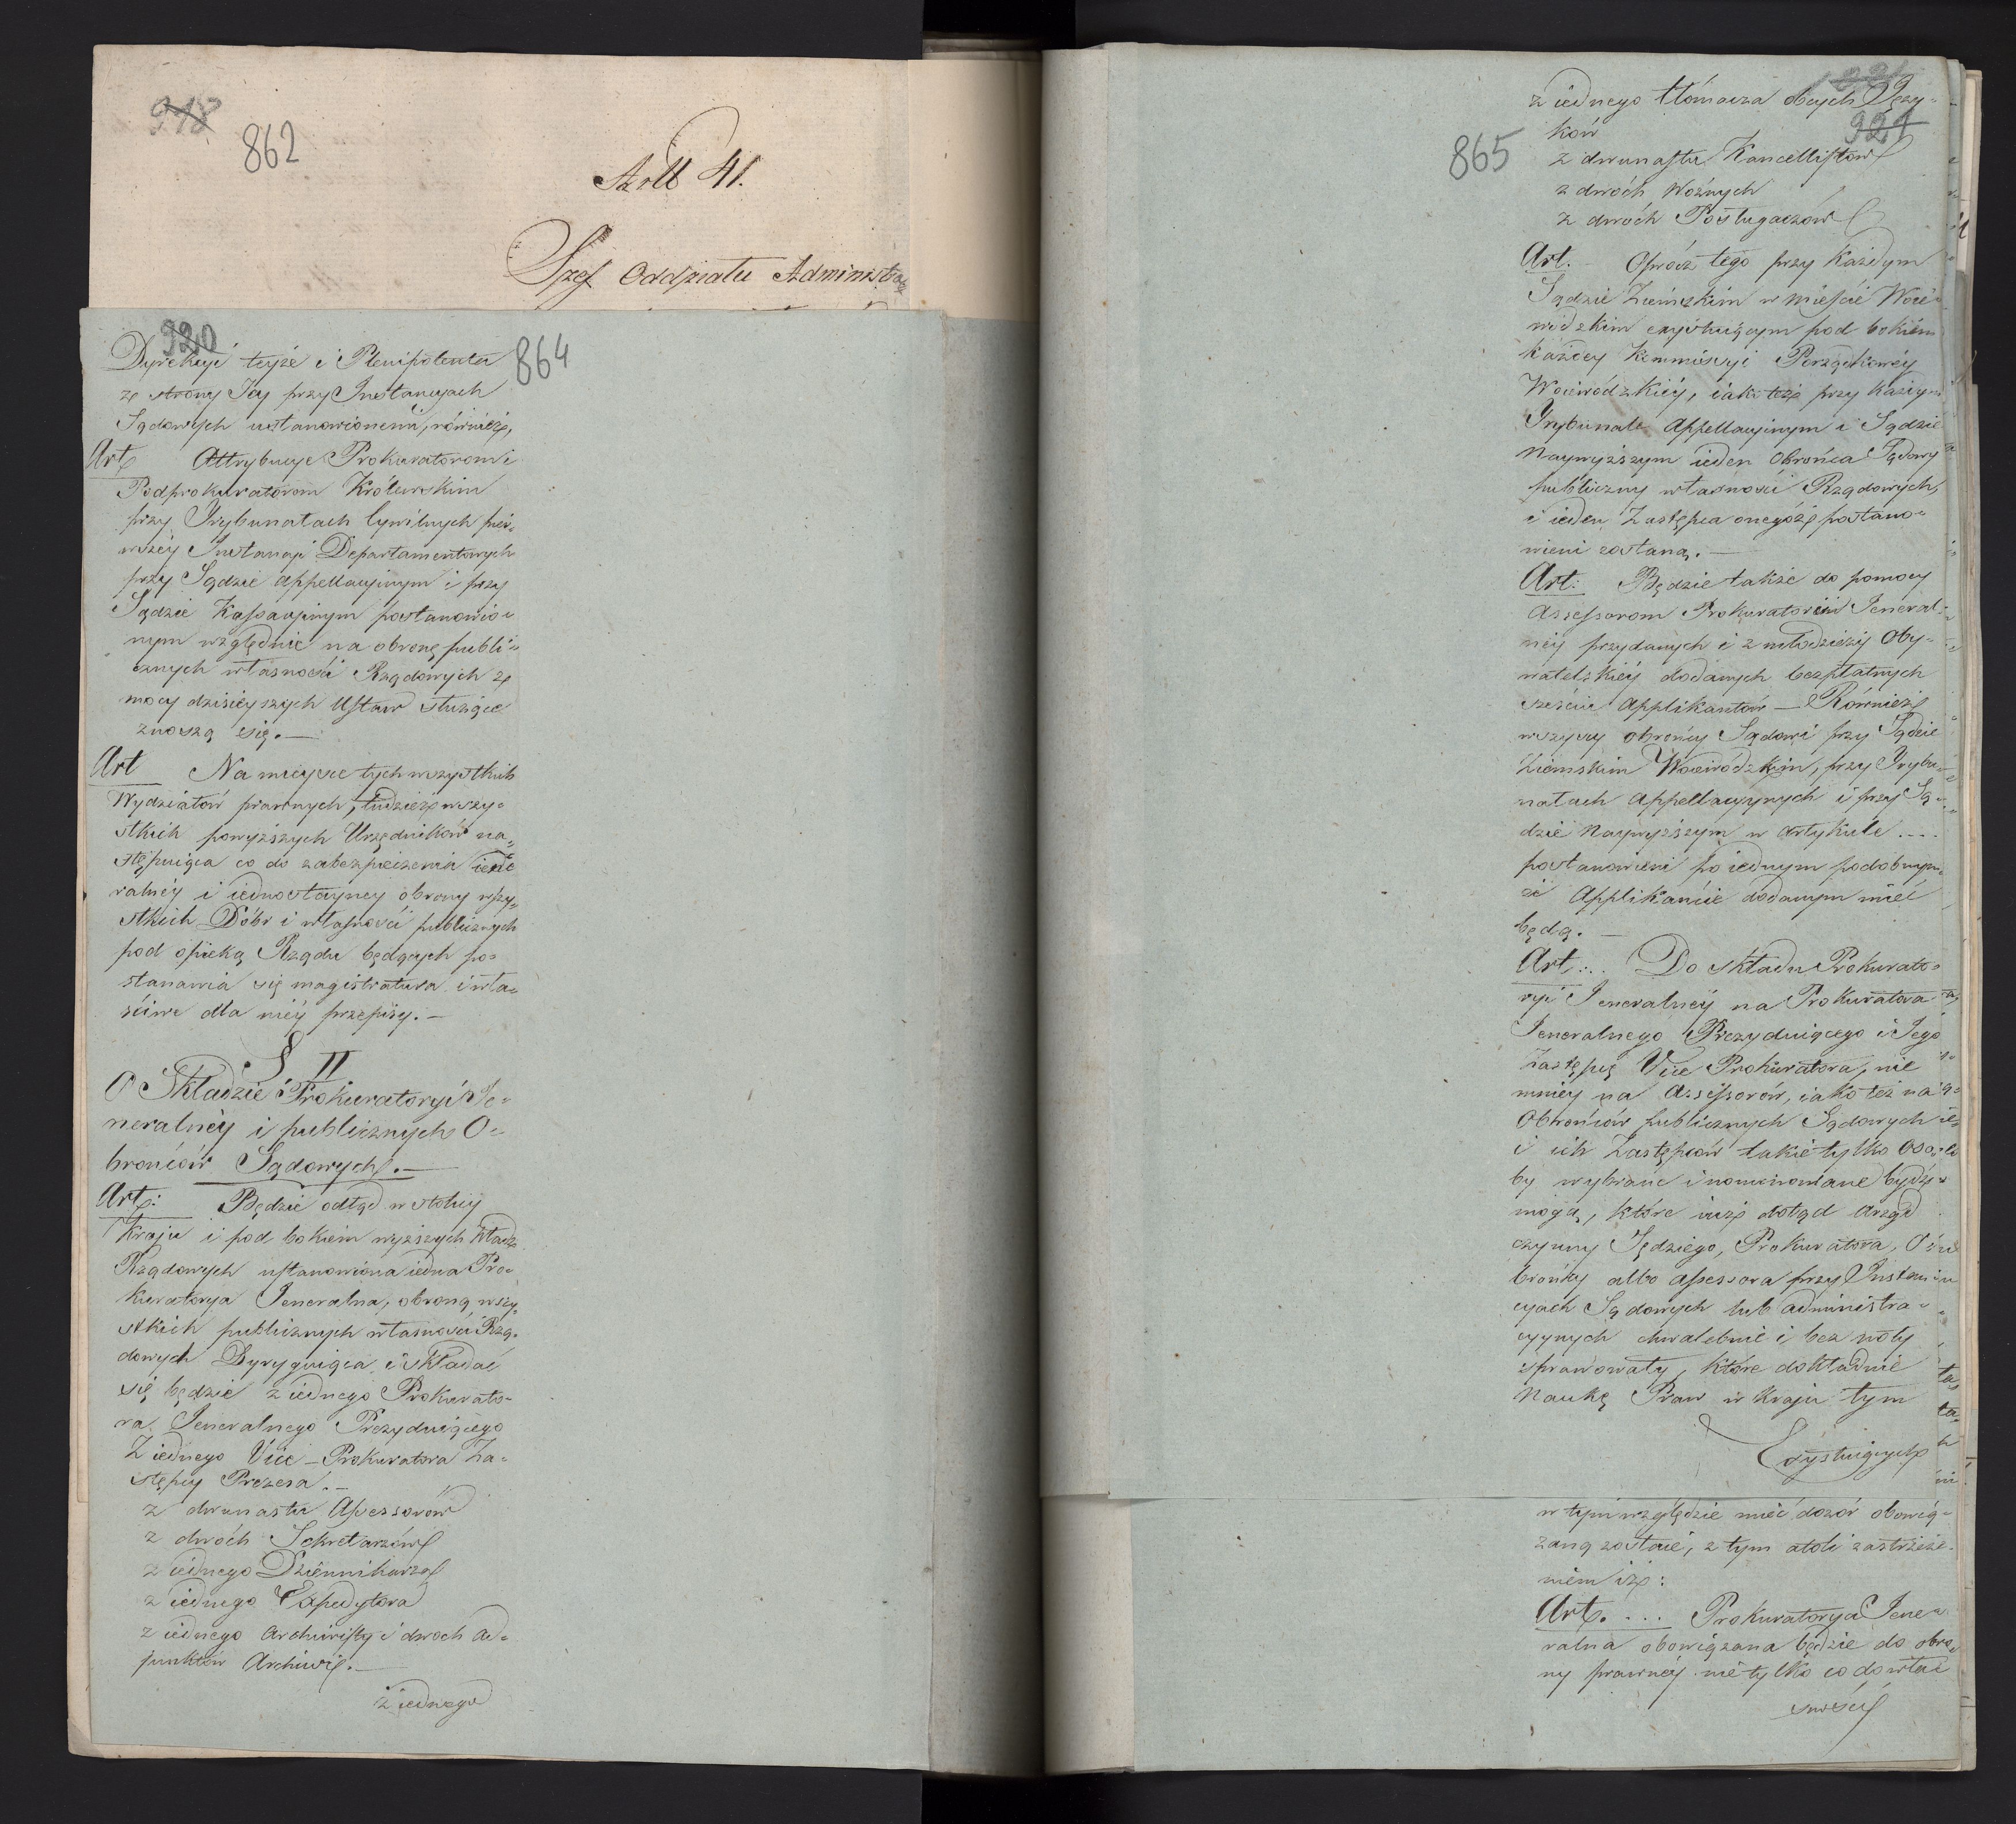 918
862
Artt 41.
Szef Oddziału Administra
920
864
Dyrekcyi teyże i Plenipotenta
ze strony Jey przy Instancyach
Sądowych ustanowionemi, również,
Art Attrybucye Prokuratorom i
Podprokuratorom Królewskim
przy Trybunałach Cywilnych pier-
wszéy Instancyi Departamentowych
przy Sądzie Appellacyinym i przy
Sądzie Kassacyinym postanowio-
nym względnie na obronę publi-
cznych własności Rządowych z
mocy dzisieyszych Ustaw służące
znoszą się.—
Art Na mieysce tych wszystkich
Wydziałów prawnych, tudzież wszy-
stkich powyższych Urzędników na-
stępuiąca co do zabezpieczenia iene
ralnéy i iednostayney obrony wszy-
stkich Dóbr i własności publicznych
pod opieką Rządu będących po-
stanawia się magistratura i wła-
ściwe dla niéy przepisy.—
§ II
O Składzie Prokuratoryi Je-
neralnéy i publicznych O-
brońców Sądowych.—
Art: Będzie odtąd w stolicy
Kraju i pod bokiem wyższych Władz
Rządowych ustanowiona iedna Pro-
kuratorya Jeneralna, obroną wszy-
stkich publicznych własności Rzą-
dowych Dyryguiąca, i składać
się będzie z iednego Prokurato-
ra Jeneralnego Prezyduiącego
Z iednego Vice-Prokuratora Za-
stępcy Prezesa.—
z dwunastu Assessorów
z dwóch Sekretarzów
z iednego Dziennikarza
z iednego Expedytora
z iednego Archiwisty i dwoch ad-
junktów Archiwi.—
z iednego
921
865
z iednego tłómacza obcych Języ-
ków
z dwunastu Kancellistów
z dwóch Woźnych
z dwóch Posługaczów
Art. - Oprócz tego przy każdym
Sądzie Ziemskim w Mieście Woie-
wódzkim exystuiącym pod bokiem
każdey Kommissyi Porządkowéy
Woiewódzkiéy, iako też przy każdym
Trybunale Appellacyinym i Sądzie
Naywyższym ieden Obrońca Sądowy
publiczny własności Rządowych,
i ieden Zastępca onegóż postano-
wieni zostaną.—
Art: Będzie także do pomocy
Assessorom Prokuratorii Jeneral-
néy przydanych i z młodzieży Oby-
watelskiéy dodanych bezpłatnych
sześciu Applikantów — Również
wszyscy obrońcy Sądowi przy Sądzie
Ziemskim Woiewódzkim, przy Trybu-
natach Appellacyinych i przy Są-
dzie Naywyższym w Artykule ....
postanowieni po iednym podobnym-
że Applikancie dodanym mieć
będą.—
Art... Do składu Prokurato-
ryi Jeneralnéy na Prokuratora
Jeneralnego Prezyduiącego i Jego
Zastępcę Vice Prokuratora, nie
mniéy na Assessorów, iako też na
Obrońców publicznych Sądowych
i ich Zastępców takie tylko Oso-
by wybrane i nominowane bydź
mogą, które iuż dotąd urząd
czynny Sędziego, Prokuratora, O-
brońcy albo Assessora przy Instan-
cyach Sądowych lub administra-
cyynych chwalebnie i bez noty
sprawowały, które dokładnie
Naukę Praw w Kraju tym
Exystuiących
w tym względzie mieć dozór obowią-
zaną zostaie, z tym atoli zastrzeże-
niem iż:
Art. ... Prokuratorya Jene-
ralna obowiązana będzie do obro-
ny prawnéy nie tylko co do wła-
sności